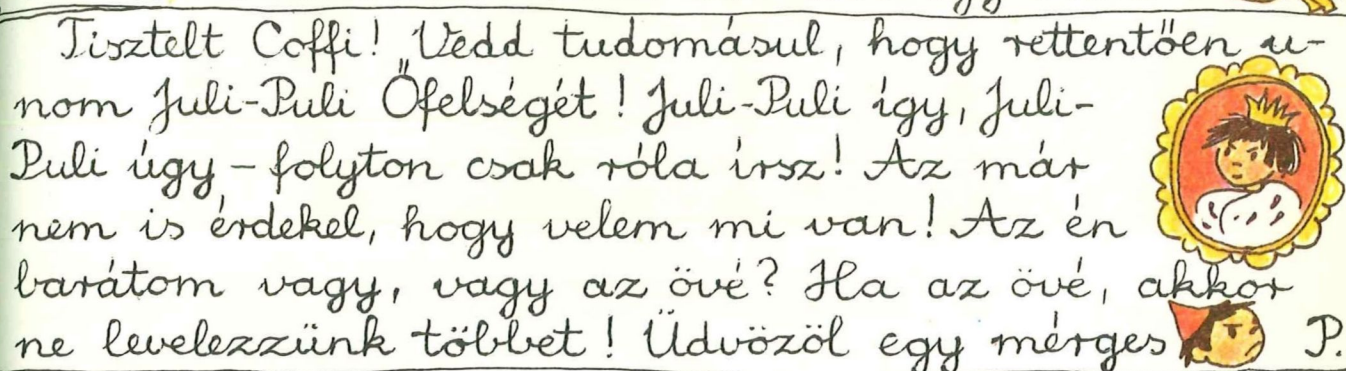 Tisztelt Coffi! Vedd tudomásul, hogy rettentően u-
nom Juli-Puli Őfelségét! Juli-Puli így, Juli-
Puli úgy – folyton csak róla írsz! Az már
nem is érdekel, hogy velem mi van! Az én
barátom vagy, vagy az övé? Ha az övé, akkor
ne levelezzünk többet! Üdvözöl egy mérges P.